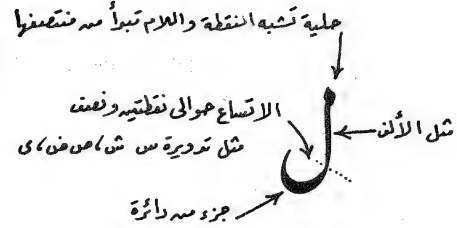 حلية تشبه النقطة واللام تبدأ من منتصفها
ل
الاتساع حوالى نقطتين ونصف
مثل تدويرة س ش ، ص ض ، ى
مثل الألف
جزء من دائرة